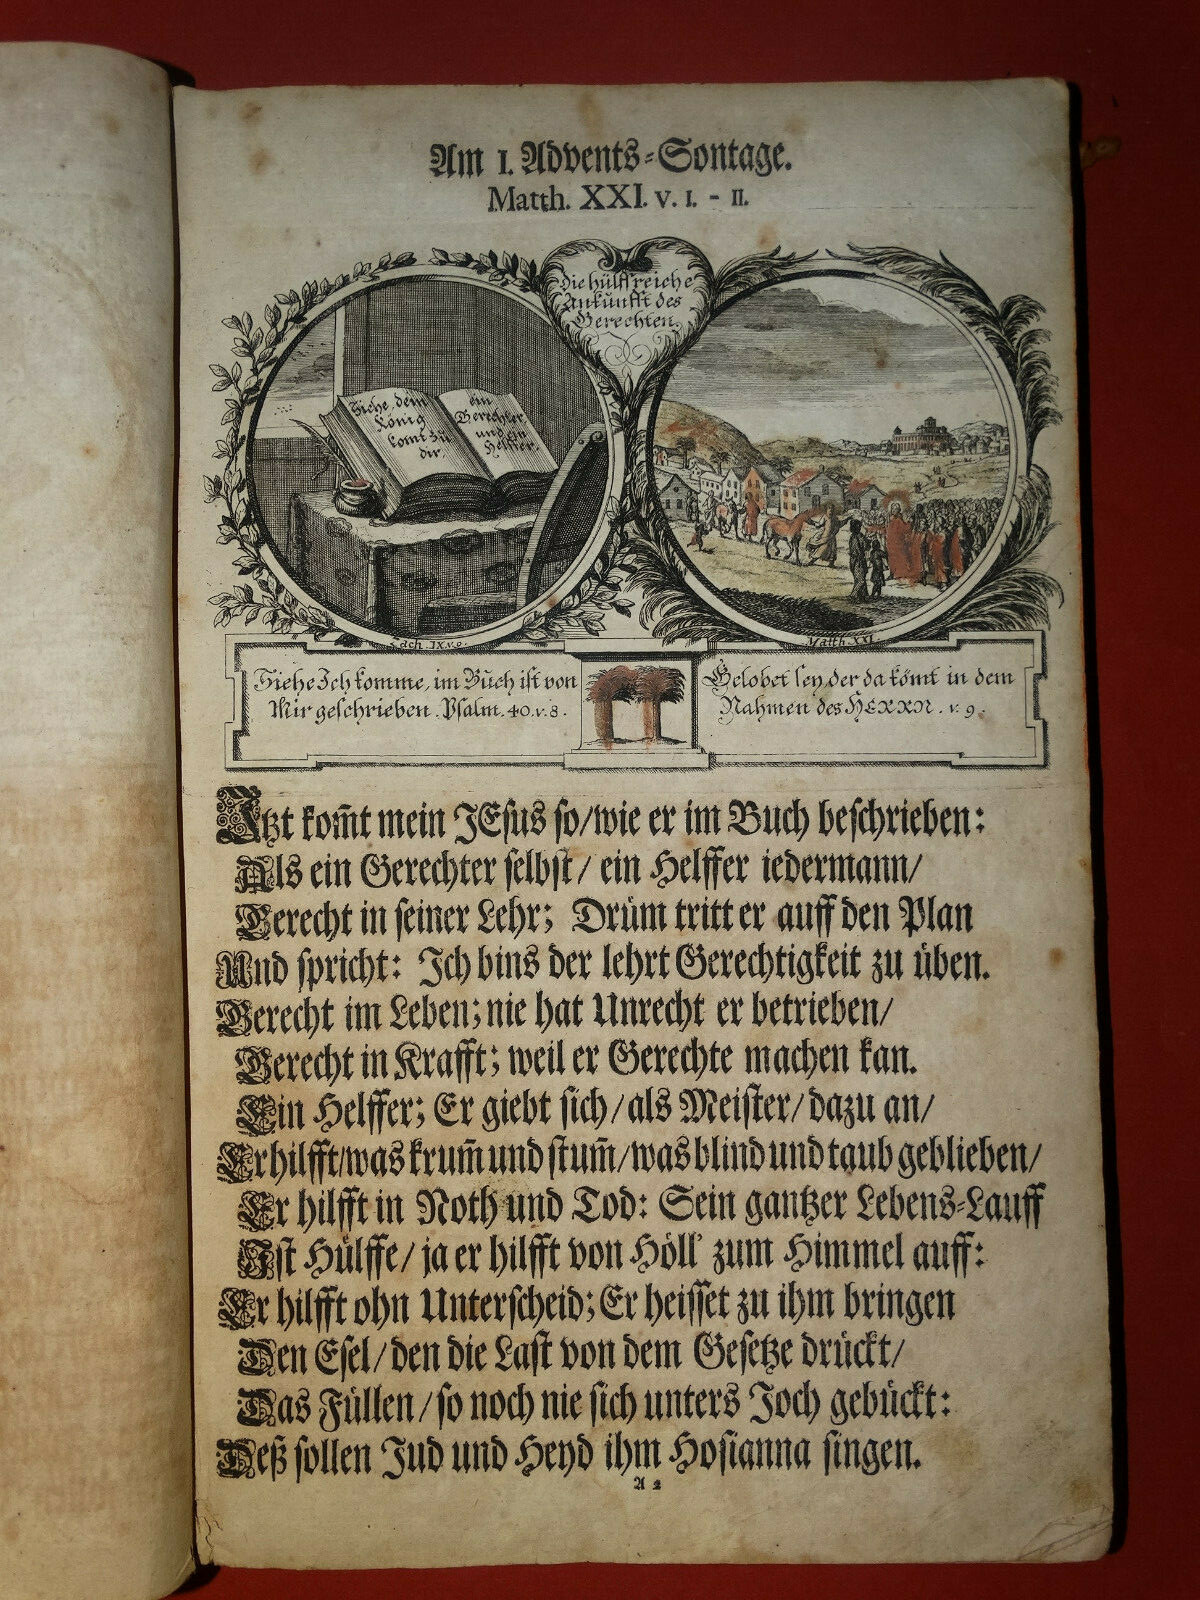 Am I. Advents-Sontage.
Matth. XXI. v. I. - II.
Die hülffreiche
Ankunfft des
Gerechten.
Siehe, dein
König
komt zu
dir,
ein
Gerechter
und ein
Helffer.
Zach. IX. v. 9.
Matth. XXI.
Siehe Ich komme, im Buch ist von
Mir geschrieben. Psalm. 40. v. 8.
Gelobet sey der da kömt in dem
Nahmen des HERRN. v. 9.
Itzt kom̃t mein JEsus so/wie er im Buch beschrieben:
Als ein Gerechter selbst/ ein Helffer iedermann/
Gerecht in seiner Lehr; Drüm tritt er auff den Plan
Und spricht: Ich bins der lehrt Gerechtigkeit zu üben.
Gerecht im Leben; nie hat Unrecht er betrieben/
Gerecht in Krafft; weil er Gerechte machen kan.
Ein Helffer; Er giebt sich/als Meister/dazu an/
Er hilfft/was krum̃ und stum̃/was blind und taub geblieben/
Er hilfft in Noth und Tod: Sein gantzer Lebens-Lauff
Ist Hülffe/ ja er hilfft von Höll' zum Himmel auff:
Er hilfft ohn Unterscheid; Er heisset zu ihm bringen
Den Esel/den die Last von dem Gesetze drückt/
Das Füllen/so noch nie sich unters Joch gebückt:
Deß sollen Jud und Heyd ihm Hosianna singen.
A 2